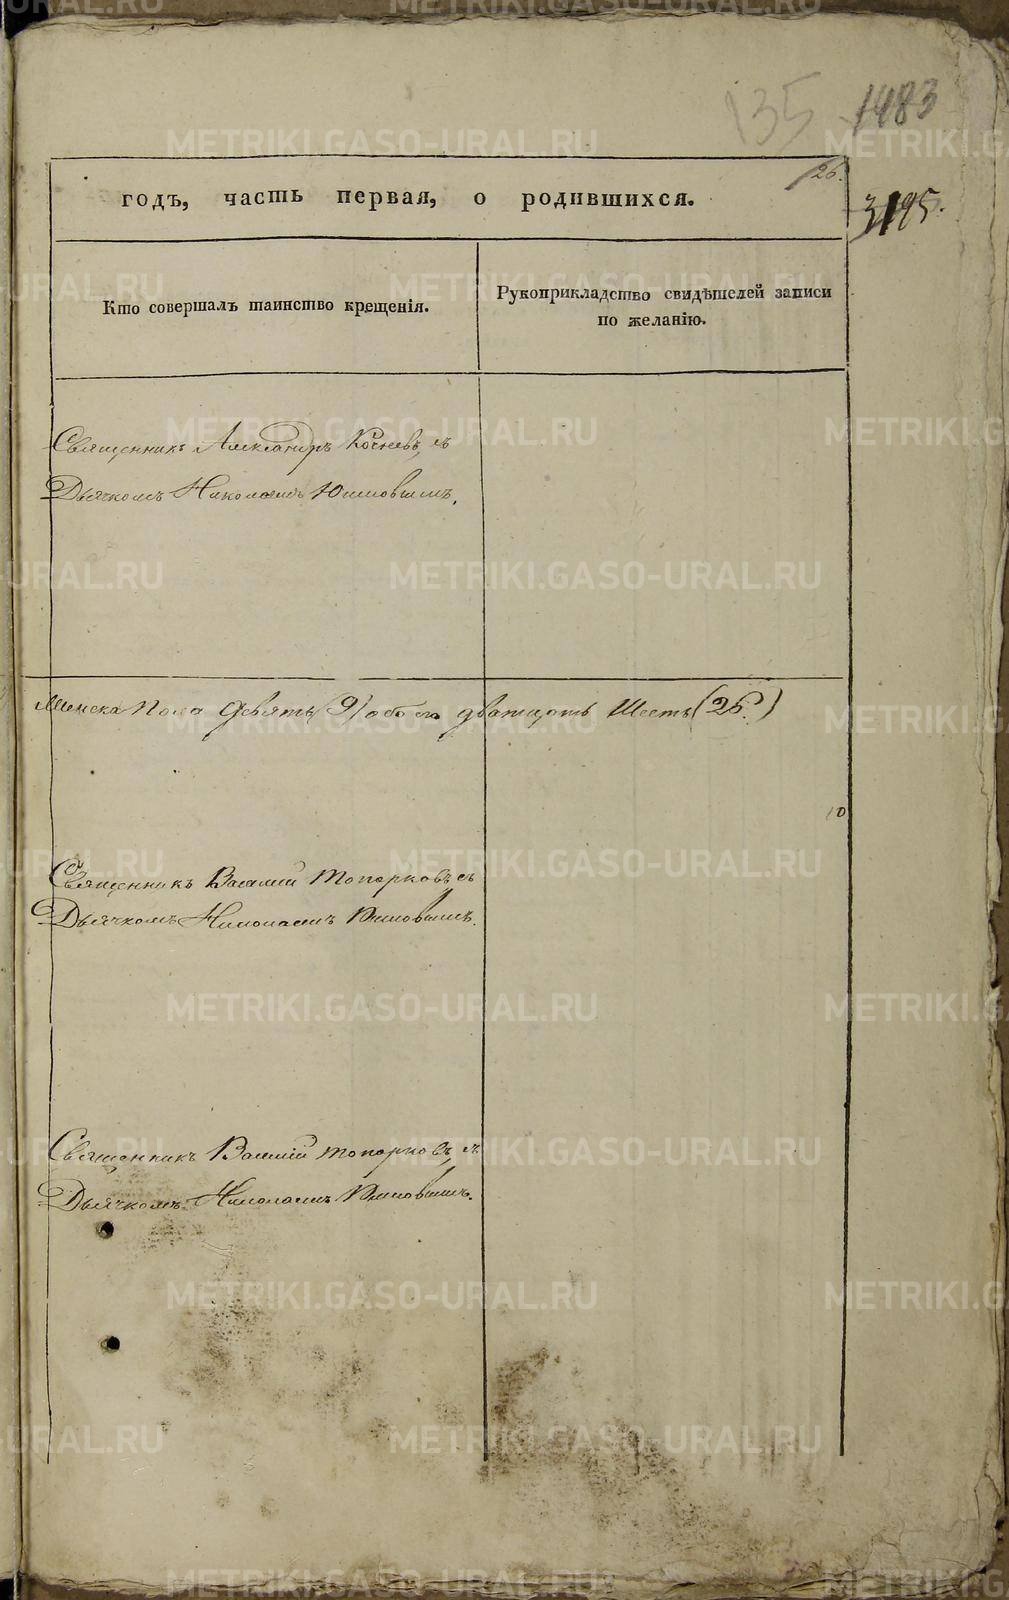 135 1483
126.
годъ, часть первая, о родившихся.
3195.
Кто совершалъ таинство крещенія.
Рукоприкладство свидѣтелей записи
по желанію.
Священникъ Александръ Кочневъ, съ
Дьячкомъ Николаемъ
Женска пола девять (9) обоего дватцать шесть (26.)
10
Священникъ Василій Топорковъ съ
Дьячкомъ Николаемъ
Священникъ Василій Топорковъ, съ
Дьячкомъ Николаемъ
METRIKI.GASO-URAL.RU